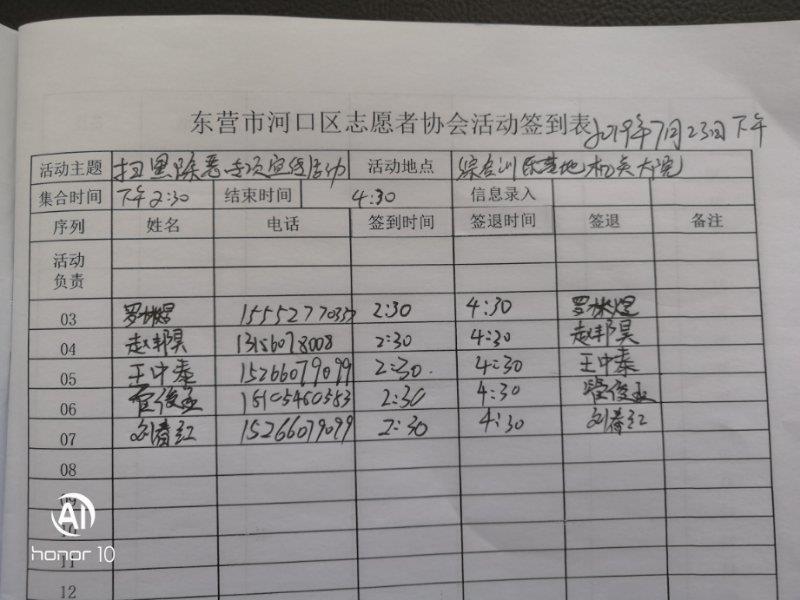 东营市河口区志愿者协会活动签到表 2019年7月23日下午
活动主题 扫黑除恶专项宣传活动 活动地点 综合训练基地机关大院
集合时间 下午2:30 结束时间 4:30 信息录入
序列 姓名 电话 签到时间 签退时间 签退 备注
活动
负责
03 罗林煜 15552770357 2:30 4:30 罗林煜
04 赵邦昊 13156078008 2:30 4:30 赵邦昊
05 王中泰 15266079099 2:30. 4:30 王中泰
06 俊 2:30 4:30 俊
07 刘春红 15266079099 2:30 4:30 刘春红
08
09
10
11
12
AI
honor 10